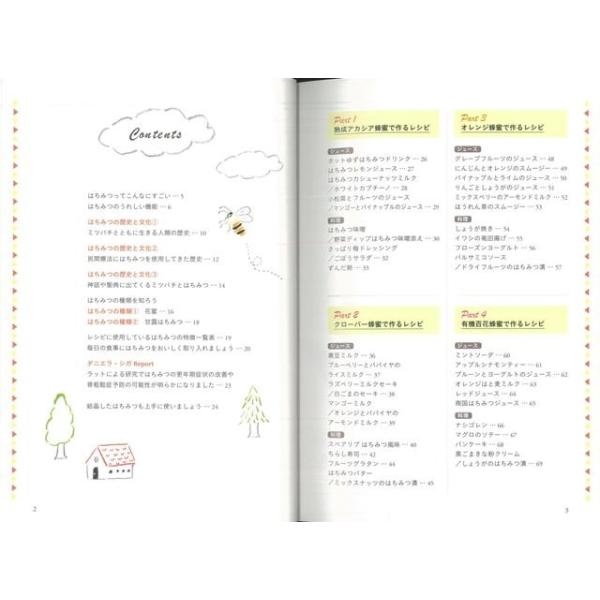 Contents
はちみつってこんなにすごい … 5
はちみつのうれしい機能 … 6
はちみつの歴史と文化①
ミツバチとともに生きる人類の歴史 … 10
はちみつの歴史と文化②
民間療法にはちみつを使用してきた歴史 … 12
はちみつの歴史と文化③
神話や聖典に出てくるミツバチとはちみつ … 14
はちみつの種類を知ろう
はちみつの種類① 花蜜 … 16
はちみつの種類② 甘露はちみつ … 18
レシピに使用しているはちみつの特徴一覧表 … 19
毎日の食事にはちみつをおいしく取り入れましょう … 20
ダニエラ・シガ Report
ラットによる研究ではちみつの更年期症状の改善や
骨粗鬆症予防の可能性が明らかになりました … 23
結晶したはちみつも上手に使いましょう … 24
2
Part 1
熟成アカシア蜂蜜で作るレシピ
ジュース
ホットゆずはちみつドリンク … 26
はちみつレモンジュース … 27
はちみつカシューナッツミルク
／ホワイトカプチーノ … 28
小松菜とフルーツのジュース
／マンゴーとパイナップルのジュース … 29
料理
はちみつ味噌
／野菜ディップはちみつ味噌添え … 30
さっぱり梅ドレッシング
／ごぼうサラダ … 32
ずんだ餅 … 33
Part 2
クローバー蜂蜜で作るレシピ
ジュース
黒豆ミルク … 36
ブルーベリーとパパイヤの
ライスミルク … 37
ラズベリーミルクセーキ
／白ごまのセーキ … 38
マンゴーミルク
／オレンジとパパイヤの
アーモンドミルク … 39
料理
スペアリブ はちみつ風味 … 40
ちらし寿司 … 42
フルーツグラタン … 44
はちみつバター
／ミックスナッツのはちみつ漬 … 45
Part 3
オレンジ蜂蜜で作るレシピ
ジュース
グレープフルーツのジュース … 48
にんじんとオレンジのスムージー … 49
パイナップルとライムのジュース … 50
りんごとしょうがのジュース … 51
ミックスベリーのアーモンドミルク … 52
ほうれん草のスムージー … 53
料理
しょうが焼き … 54
イワシの竜田揚げ … 55
フローズンヨーグルト … 56
バルサミコソース
／ドライフルーツのはちみつ漬 … 57
Part 4
有機百花蜂蜜で作るレシピ
ジュース
ミントソーダ … 60
アップルシナモンティー … 61
プルーンとヨーグルトのジュース … 62
オレンジはと麦ミルク … 63
レッドジュース … 64
南国はちみつジュース … 65
料理
ナシゴレン … 66
マグロのソテー … 67
パンケーキ … 68
黒ごまきな粉クリーム
／しょうがのはちみつ漬 … 69
3